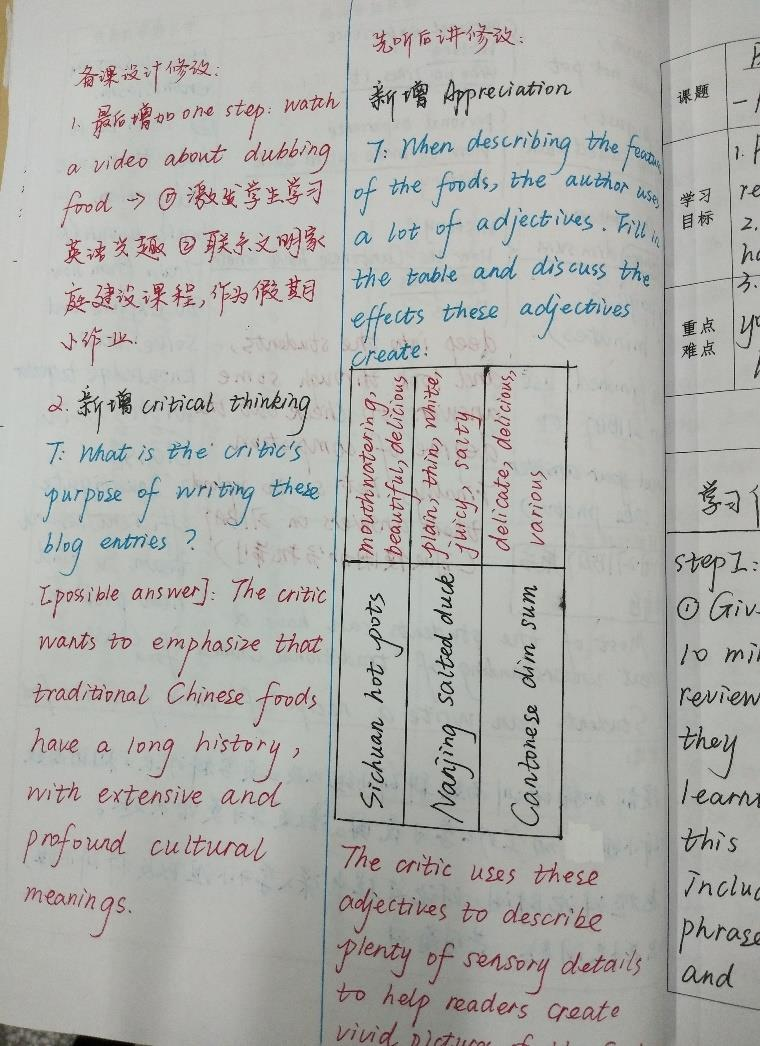 备课设计修改:
1. 最后增加one step: watch
a video about dubbing
food → ① 激发学生学习
英语兴趣 ② 联系文明家
庭建设课程,作为假期
小作业.
2. 新增 critical thinking
T: What is the critic's
purpose of writing these
blog entries ?
[possible answer]: The critic
wants to emphasize that
traditional Chinese foods
have a long history,
with extensive and
profound cultural
meanings.
先听后讲修改:
新增 Appreciation
T: When describing the featu
of the foods, the author uses
a lot of adjectives. Fill in
the table and discuss the
effects these adjectives
create:
Sichuan hot pots
mouthwatering,
beautiful, delicious
Nanjing salted duck
plain, thin, white,
juicy, salty
Cantonese dim sum
delicate, delicious,
various
The critic uses these
adjectives to describe
plenty of sensory details
to help readers create
vivid
课题
学习
目标
1.
re
2.
ha
3.
重点
难点
yo
学习
step1:
① Giv
10 mi
review
they
learnt
this
includ
phrase
and